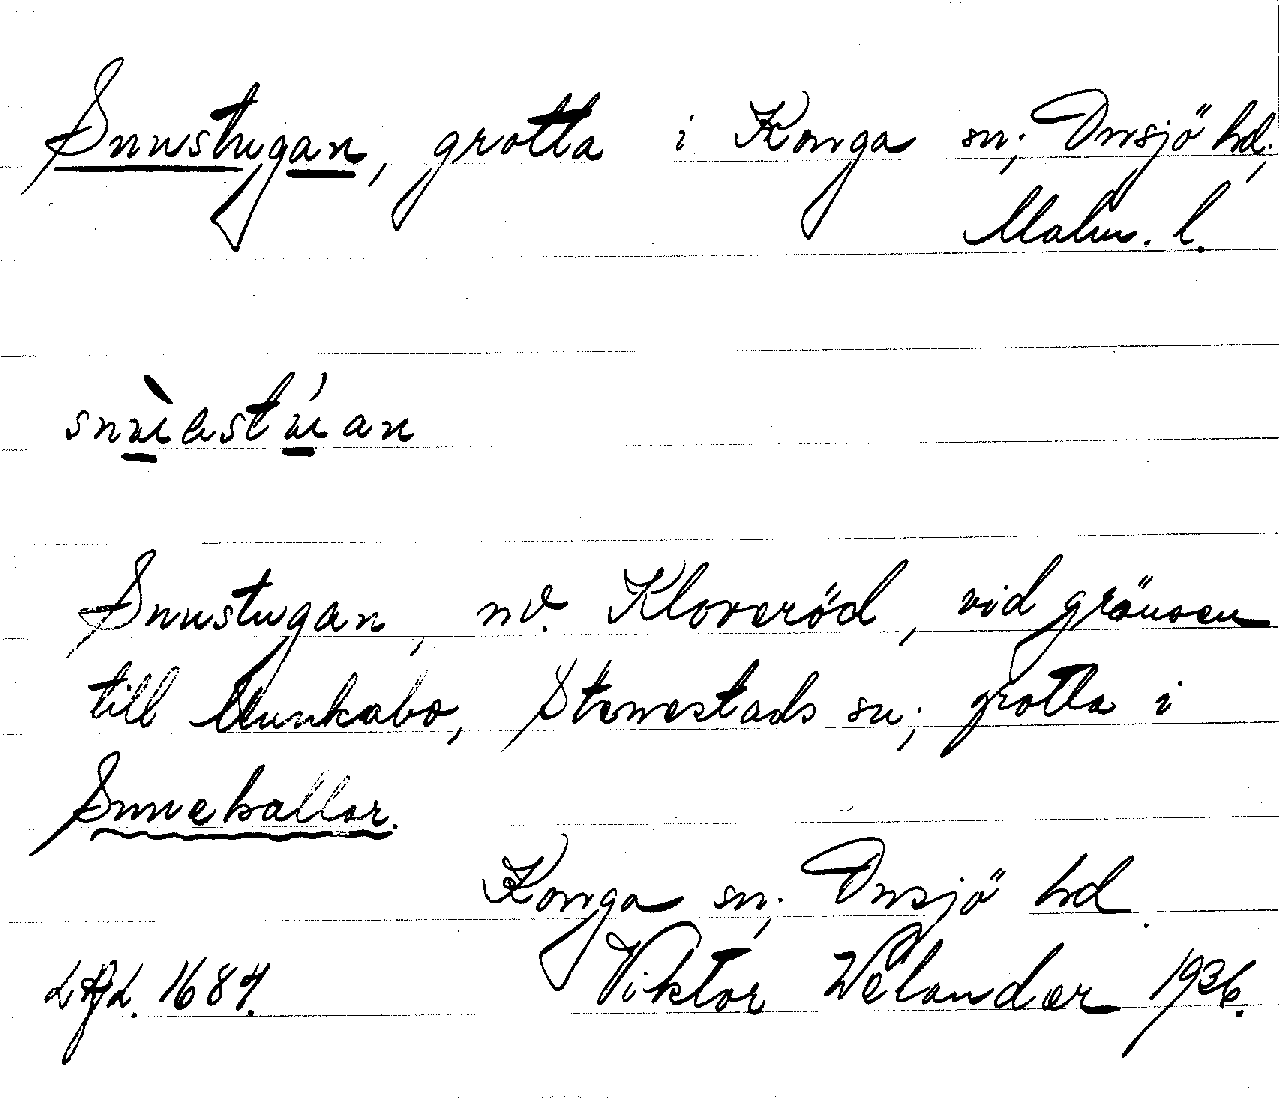 Snustugan, grotta i Konga sn; Onsjö hd;
Malm. l.
Snustugan, nv. Kloveröd, vid gränsen
till Munkabo, Stenestads sn; grotta i
Snuehallar.
Konga sn; Onsjö hd
1684. Viktor Welander 1936.